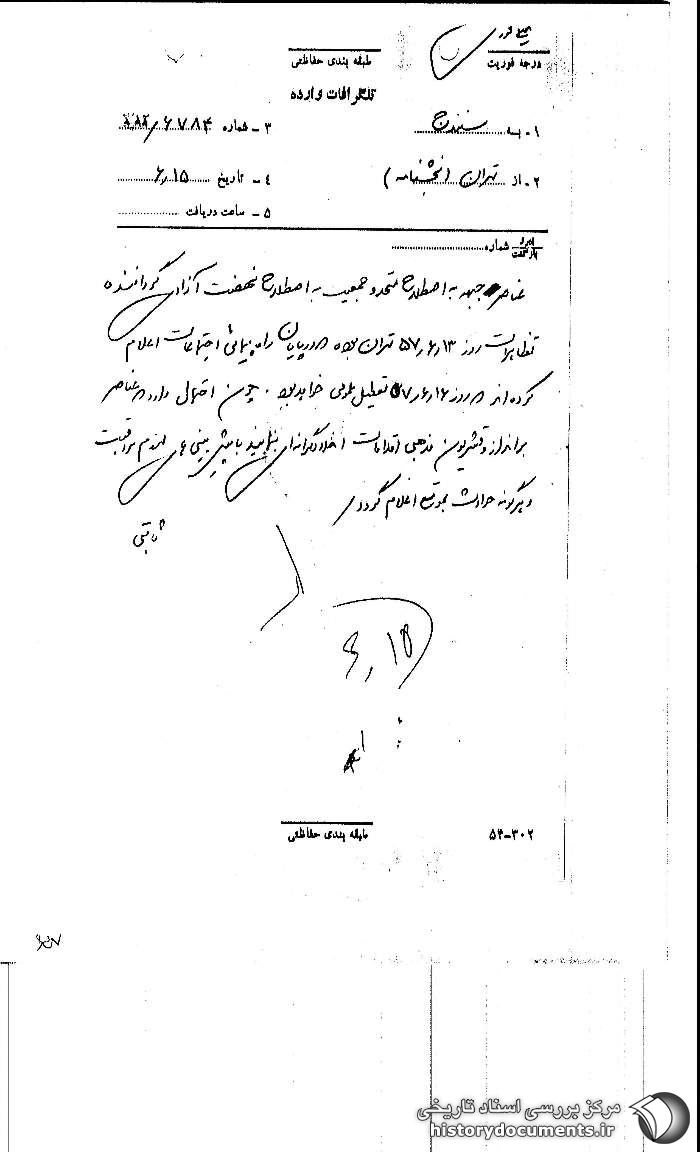 خیلی فوری
درجه فوریت
طبقه بندی حفاظتی
تلگرافات وارده
۱- به سنندج
۳- شماره ۶۷۸۴/
۲- از تهران (بخشنامه)
۴- تاریخ ۶٫۱۵
۵- ساعت دریافت
شماره
عناصر جبهه به اصطلاح متحد و جمعیت به اصطلاح نهضت آزادی گرداننده
تظاهرات روز ۵۷٫۶٫۱۳ تهران بوده و در پایان راه پیمائی اجتماعات اعلام
کرده اند در روز ۵۷٫۶٫۱۶ تعطیل عمومی خواهد بود . چون احتمال دارد عناصر
برانداز و قشریون مذهبی اقدامات اخلالگرانه ای بنمایند با پیش بینی های لازم مراقبت
و هرگونه حوادث بموقع اعلام گردد
ثابتی
۶٫۱۵
طبقه بندی حفاظتی
۵۴-۳۰۲
مرکز بررسی اسناد تاریخی
historydocuments.ir